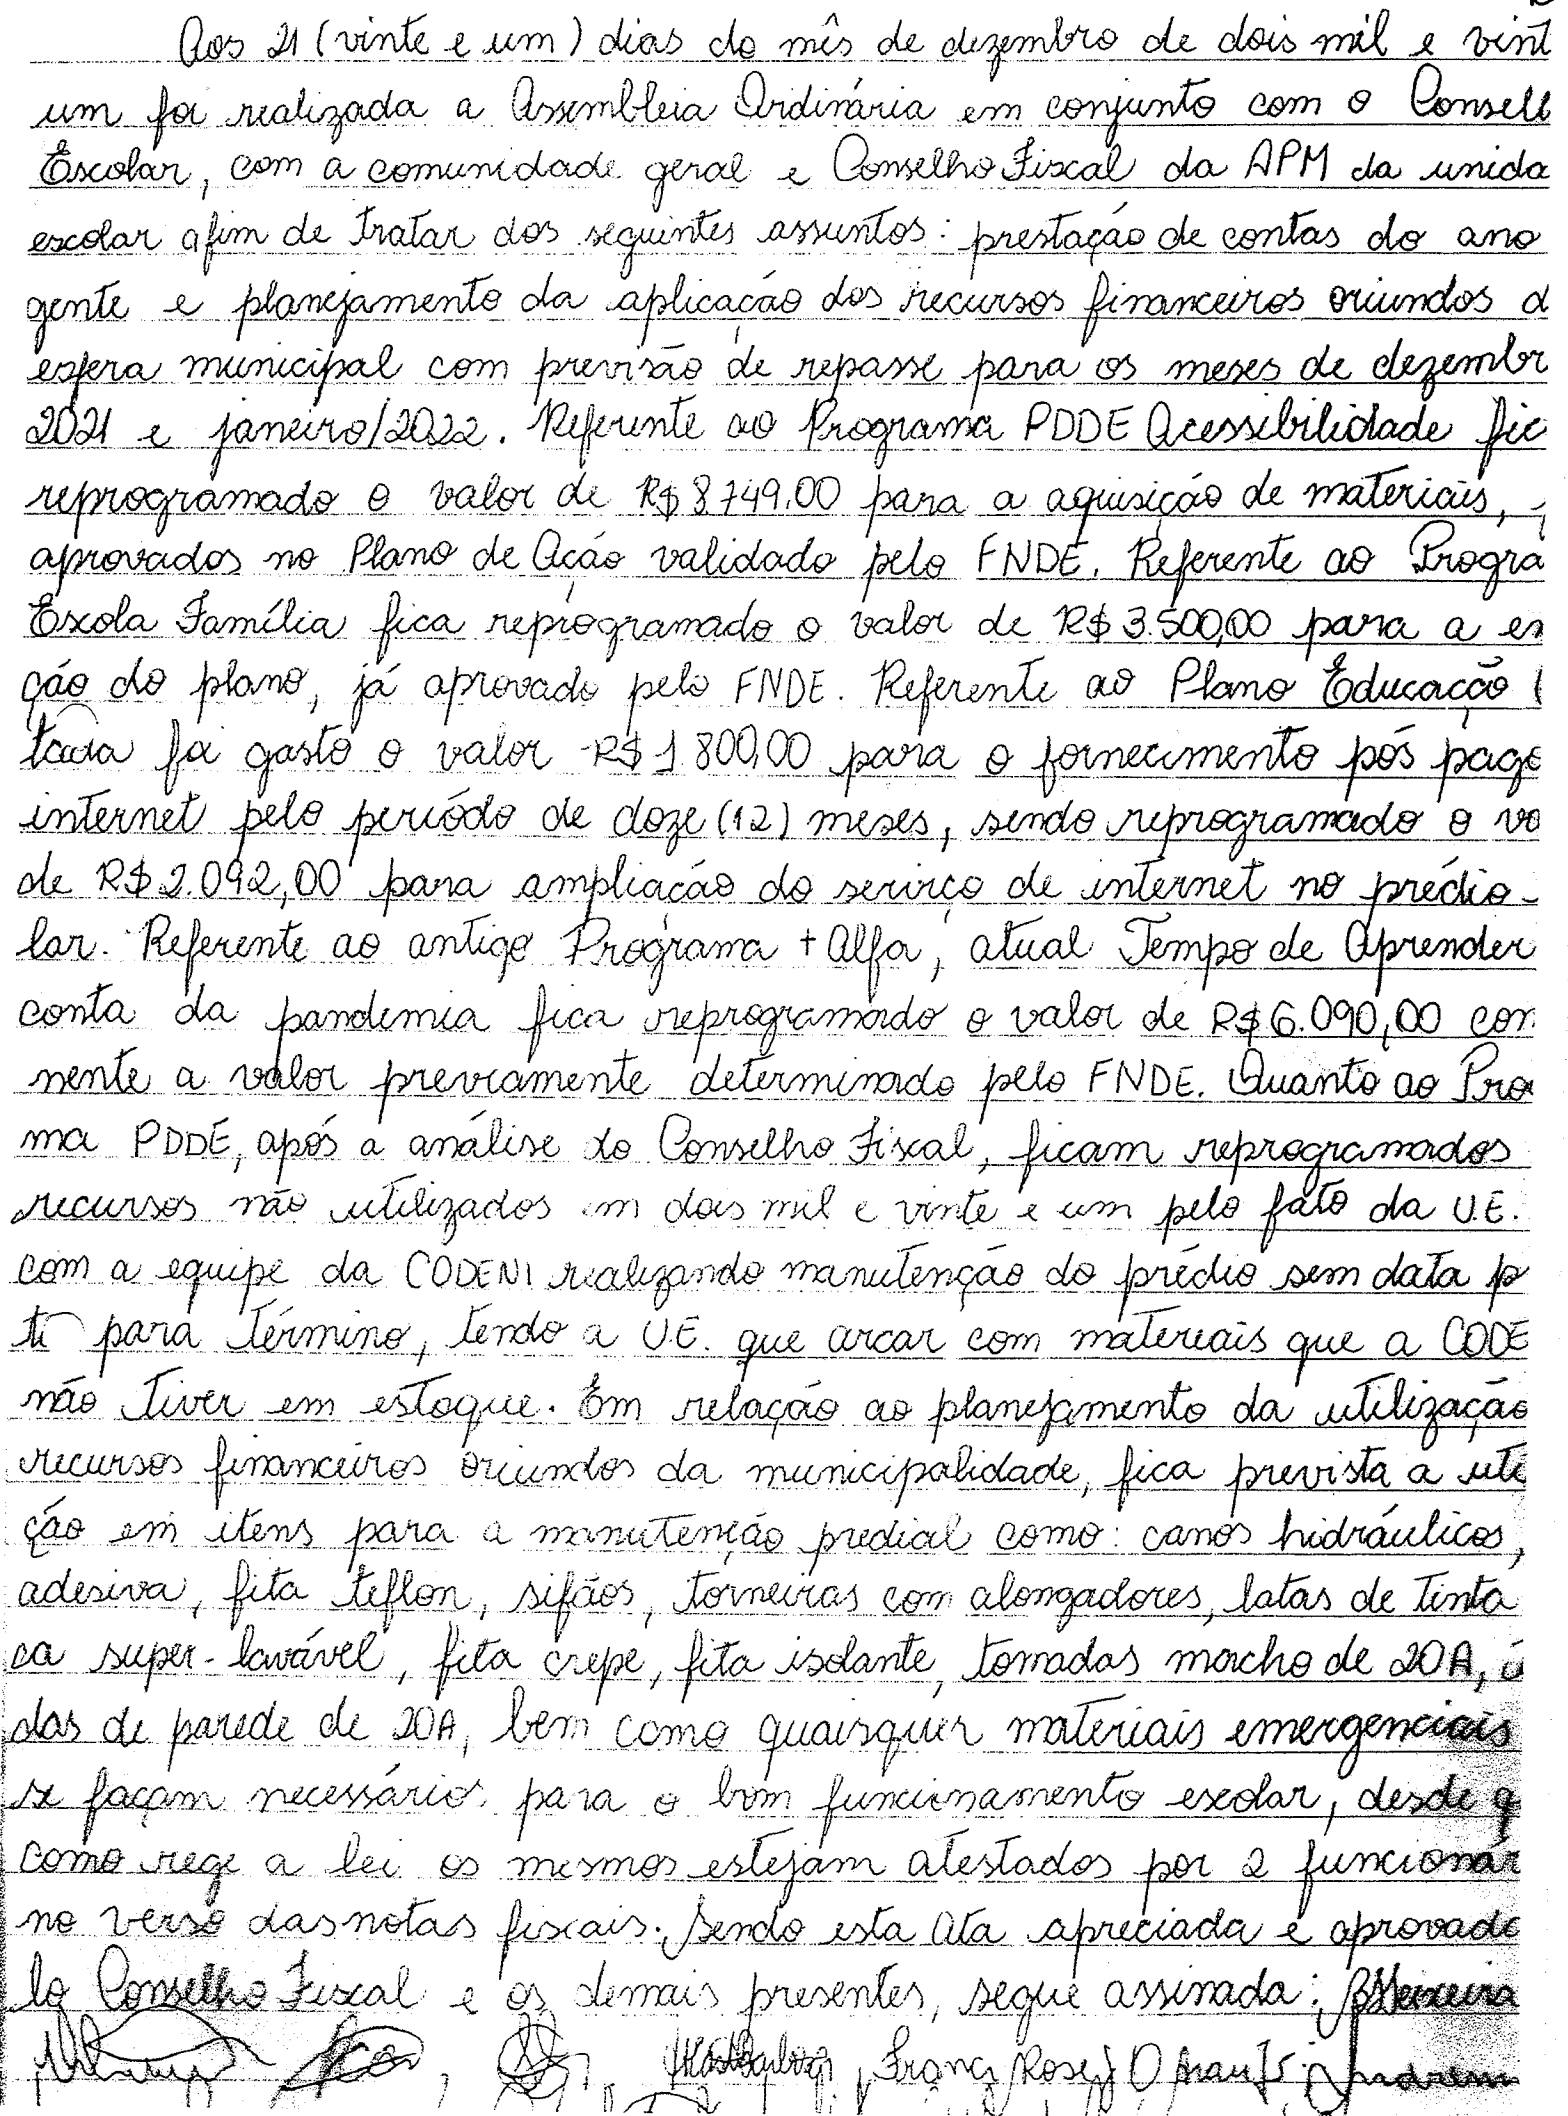 Aos 21 (vinte e um) dias do mês de dezembro de dois mil e vint
um foi realizada a Assembleia Ordinária em conjunto com o Consell
Escolar, com a comunidade geral e Conselho Fiscal da APM da unida
escolar afim de tratar dos seguintes assuntos: prestação de contas do ano
gente e planejamento da aplicação dos recursos financeiros oriundos d
esfera municipal com previsão de repasse para os meses de dezembr
2021 e janeiro/2022. Referente ao Programa PDDE Acessibilidade fic
reprogramado o valor de R$ 8.749,00 para a aquisição de materiais,
aprovados no Plano de Ação validado pelo FNDE. Referente ao Progra
Escola Família fica reprogramado o valor de R$ 3.500,00 para a ex
ção do plano, já aprovado pelo FNDE. Referente ao Plano Educacção
tada foi gasto o valor R$ 1 800,00 para o fornecimento pós pago
internet pelo período de doze (12) meses, sendo reprogramado o va
de R$ 2.092,00 para ampliação do serviço de internet no prédio
lar. Referente ao antigo Programa + Alfa, atual Tempo de Aprender
conta da pandemia fica reprogramado o valor de R$ 6.090,00 con
nente a valor previamente determinado pelo FNDE. Quanto ao Pro
ma PDDE, após a análise do Conselho Fiscal, ficam reprogramados
recursos não utilizados em dois mil e vinte e um pelo fato da U.E.
com a equipe da CODENI realizando manutenção do prédio sem data p
ti para término, tendo a U.E. que arcar com materiais que a CODE
não tiver em estoque. Em relação ao planejamento da utilização
recursos financeiros oriundos da municipalidade, fica prevista a uti
ção em itens para a manutenção predial como: canos hidráulicos,
adesiva, fita teflon, sifãos, torneiras com alongadores, latas de tinta
ca super-lavável, fita crepe, fita isolante, tomadas macho de 20A,
das de parede de 20A, bem como quaisquer materiais emergenciais
se façam necessários para o bom funcionamento escolar, desde q
como rege a lei os mesmos estejam atestados por 2 funcionár
no verso das notas fiscais. Sendo esta Ata apreciada e aprovada
lo Conselho Fiscal e os demais presentes, segue assinada: